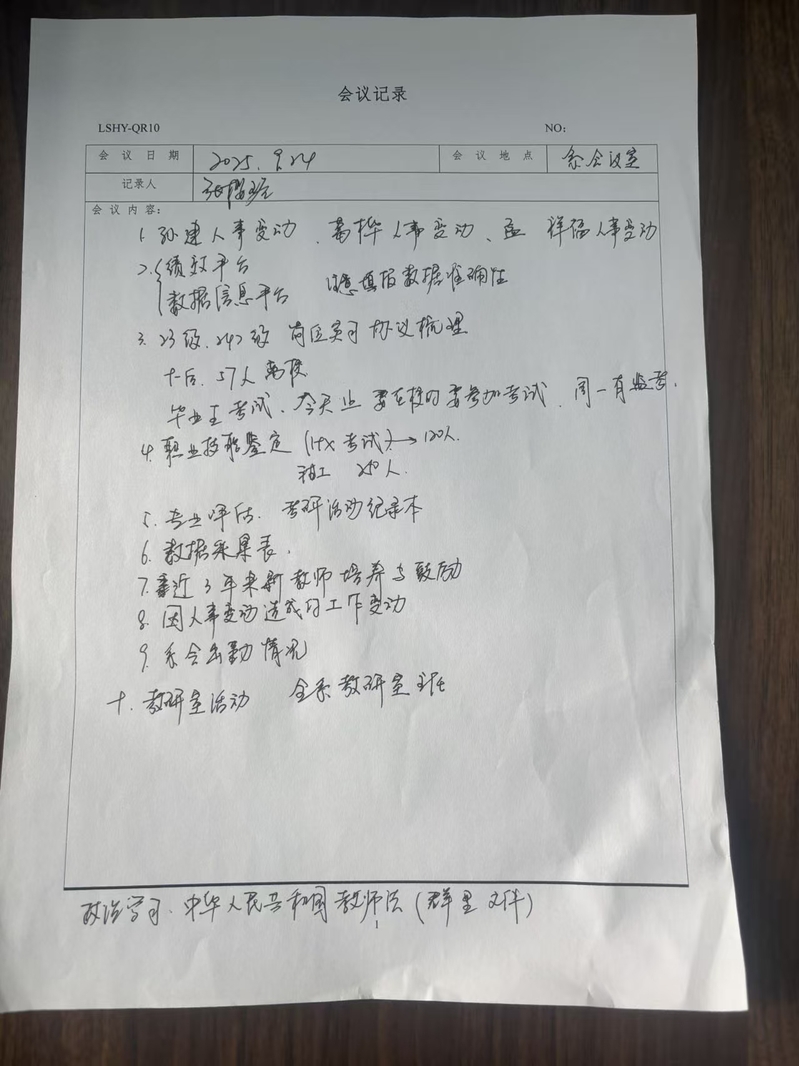 会议记录
LSHY-QR10 NO:
会议日期 2025.9.24 会议地点 系会议室
记录人
会议内容:
1. 孙建人事变动、 人事变动、孟祥 人事变动
2. 绩效平台
数据信息平台 注意填报数据准确性
3. 23级、242级 岗位实习协议梳理
十一后、57人离校
毕业生考试、今天止 要在校的要参加考试、周一有监考、
4. 职业技能鉴定 (1+X考试)→120人.
250人.
5. 专业评估. 教研活动纪录本
6. 数据采集表.
7. 最近3年来新教师培养与鼓励
8. 因人事变动造成的工作变动
9. 系会出勤情况
十. 教研室活动 全系教研室主任
政治学习: 中华人民共和国教师法(群里文件)